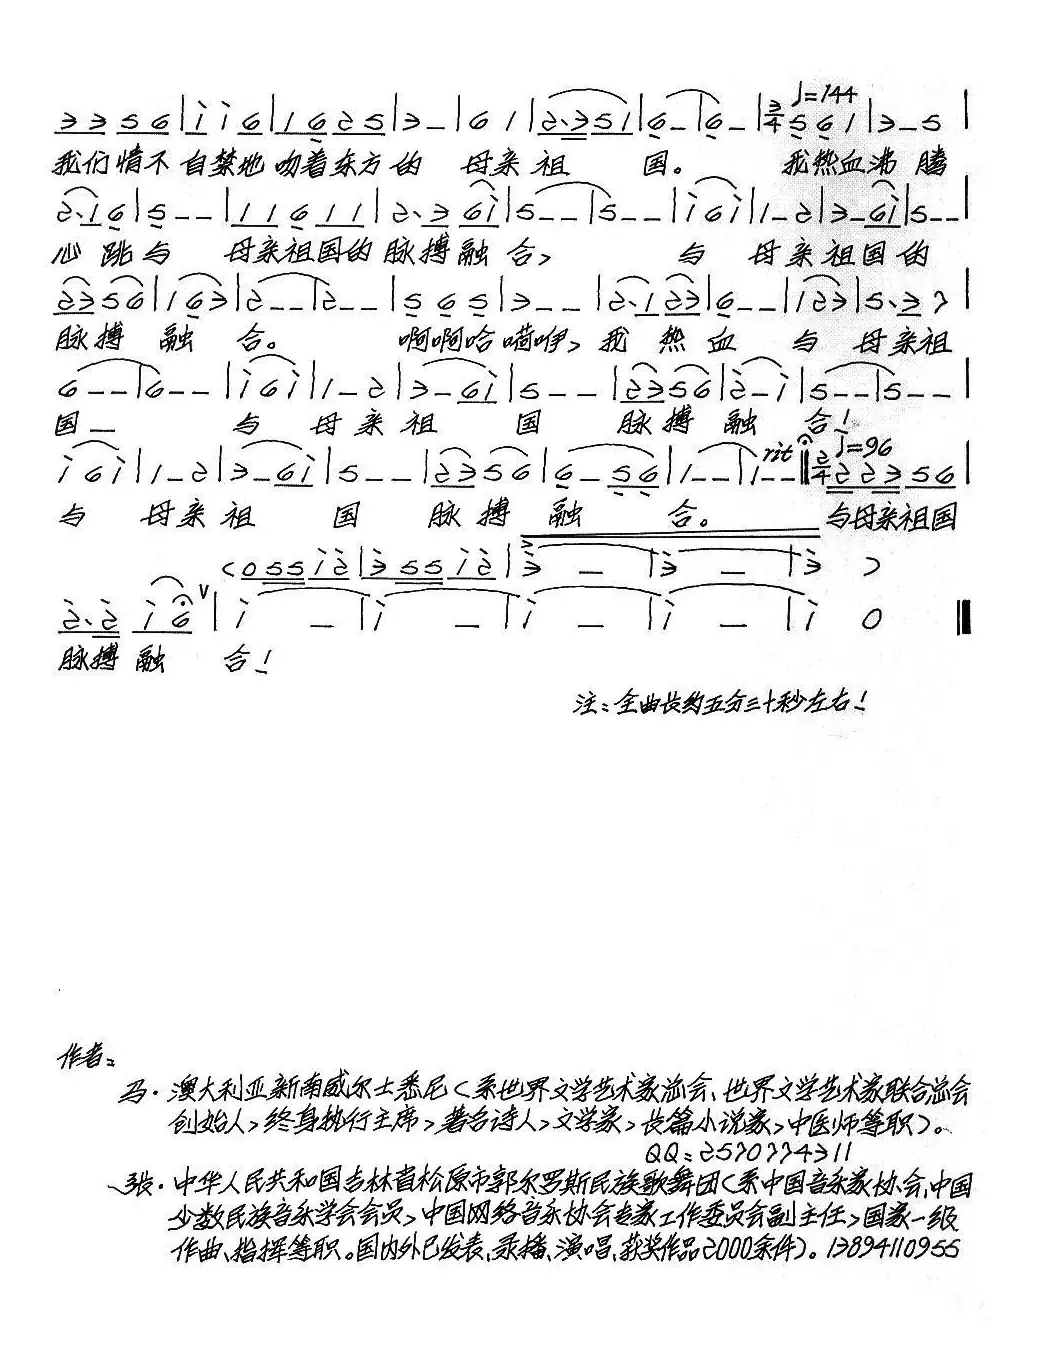 ♩=144
3 3 5 6 | i i 6 | 1 6 2 5 | 3 – | 6 1 | 2. 3 5 1 | 6 – | 6 – | 3/4 5 6 1 | 3 – 5 |
我们情不自禁地吻着东方的 母亲祖 国。 我热血沸腾
2. 1 6 | 5 – – | 1 1 6 1 1 | 2. 3 6 i | 5 – – | 5 – – | i 6 i | 1 – 2 | 3 – 6 i | 5 – – |
心跳与 母亲祖国的脉搏融合, 与 母亲祖国的
2 3 5 6 | 1 6 3 | 2 – – | 2 – – | 5 6 5 | 3 – – | 2. 1 2 3 | 6 – – | 1 2 3 | 5. 3 7 |
脉搏 融 合。 啊啊哈嗬咿, 我热血 与母亲祖
6 – – | 6 – – | i 6 i | 1 – 2 | 3 – 6 i | 5 – – | 2 3 5 6 | 2 – i | 5 – – | 5 – – |
国– 与 母亲祖 国 脉搏融 合!
rit ♩=96
i 6 i | 1 – 2 | 3 – 6 i | 5 – – | 2 3 5 6 | 6 – 5 6 | 1 – – | 1 – – ‖ 2/4 2 2 3 5 6 |
与 母亲祖 国 脉搏 融 合。 与母亲祖国
< 0 5 5 i 2 | 3 5 5 i 2 | 3 – | 3 – | 3 >
2. 2 i 6 ∨ | i – | i – | i – | i – | i 0 ‖
脉搏融 合!
注:全曲长约五分三十秒左右!
作者:
冯·澳大利亚新南威尔士悉尼(系世界文学艺术家总会、世界文学艺术家联合总会
创始人,终身执行主席,著名诗人,文学家,长篇小说家,中医师等职)。
QQ:2570774311
张·中华人民共和国吉林省松原市郭尔罗斯民族歌舞团(系中国音乐家协会、中国
少数民族音乐学会会员,中国网络音乐协会专家工作委员会副主任,国家一级
作曲、指挥等职。国内外已发表、录播、演唱、获奖作品2000余件)。13894110955